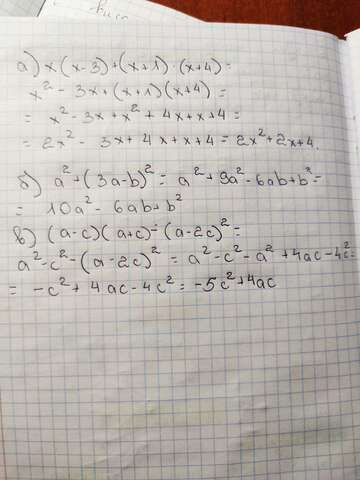 а) x(x-3)+(x+1)·(x+4)=
x²- 3x+(x+1)(x+4)=
= x²-3x+x²+4x+x+4=
= 2x²- 3x+4x+x+4=2x²+2x+4.
б) a²+(3a-b)²= a²+9a²-6ab+b²=
= 10a²-6ab+b²
в) (a-c)(a+c)-(a-2c)²=
a²-c²-(a-2c)²= a²-c²-a²+4ac-4c²=
= -c²+4ac-4c²=-5c²+4ac